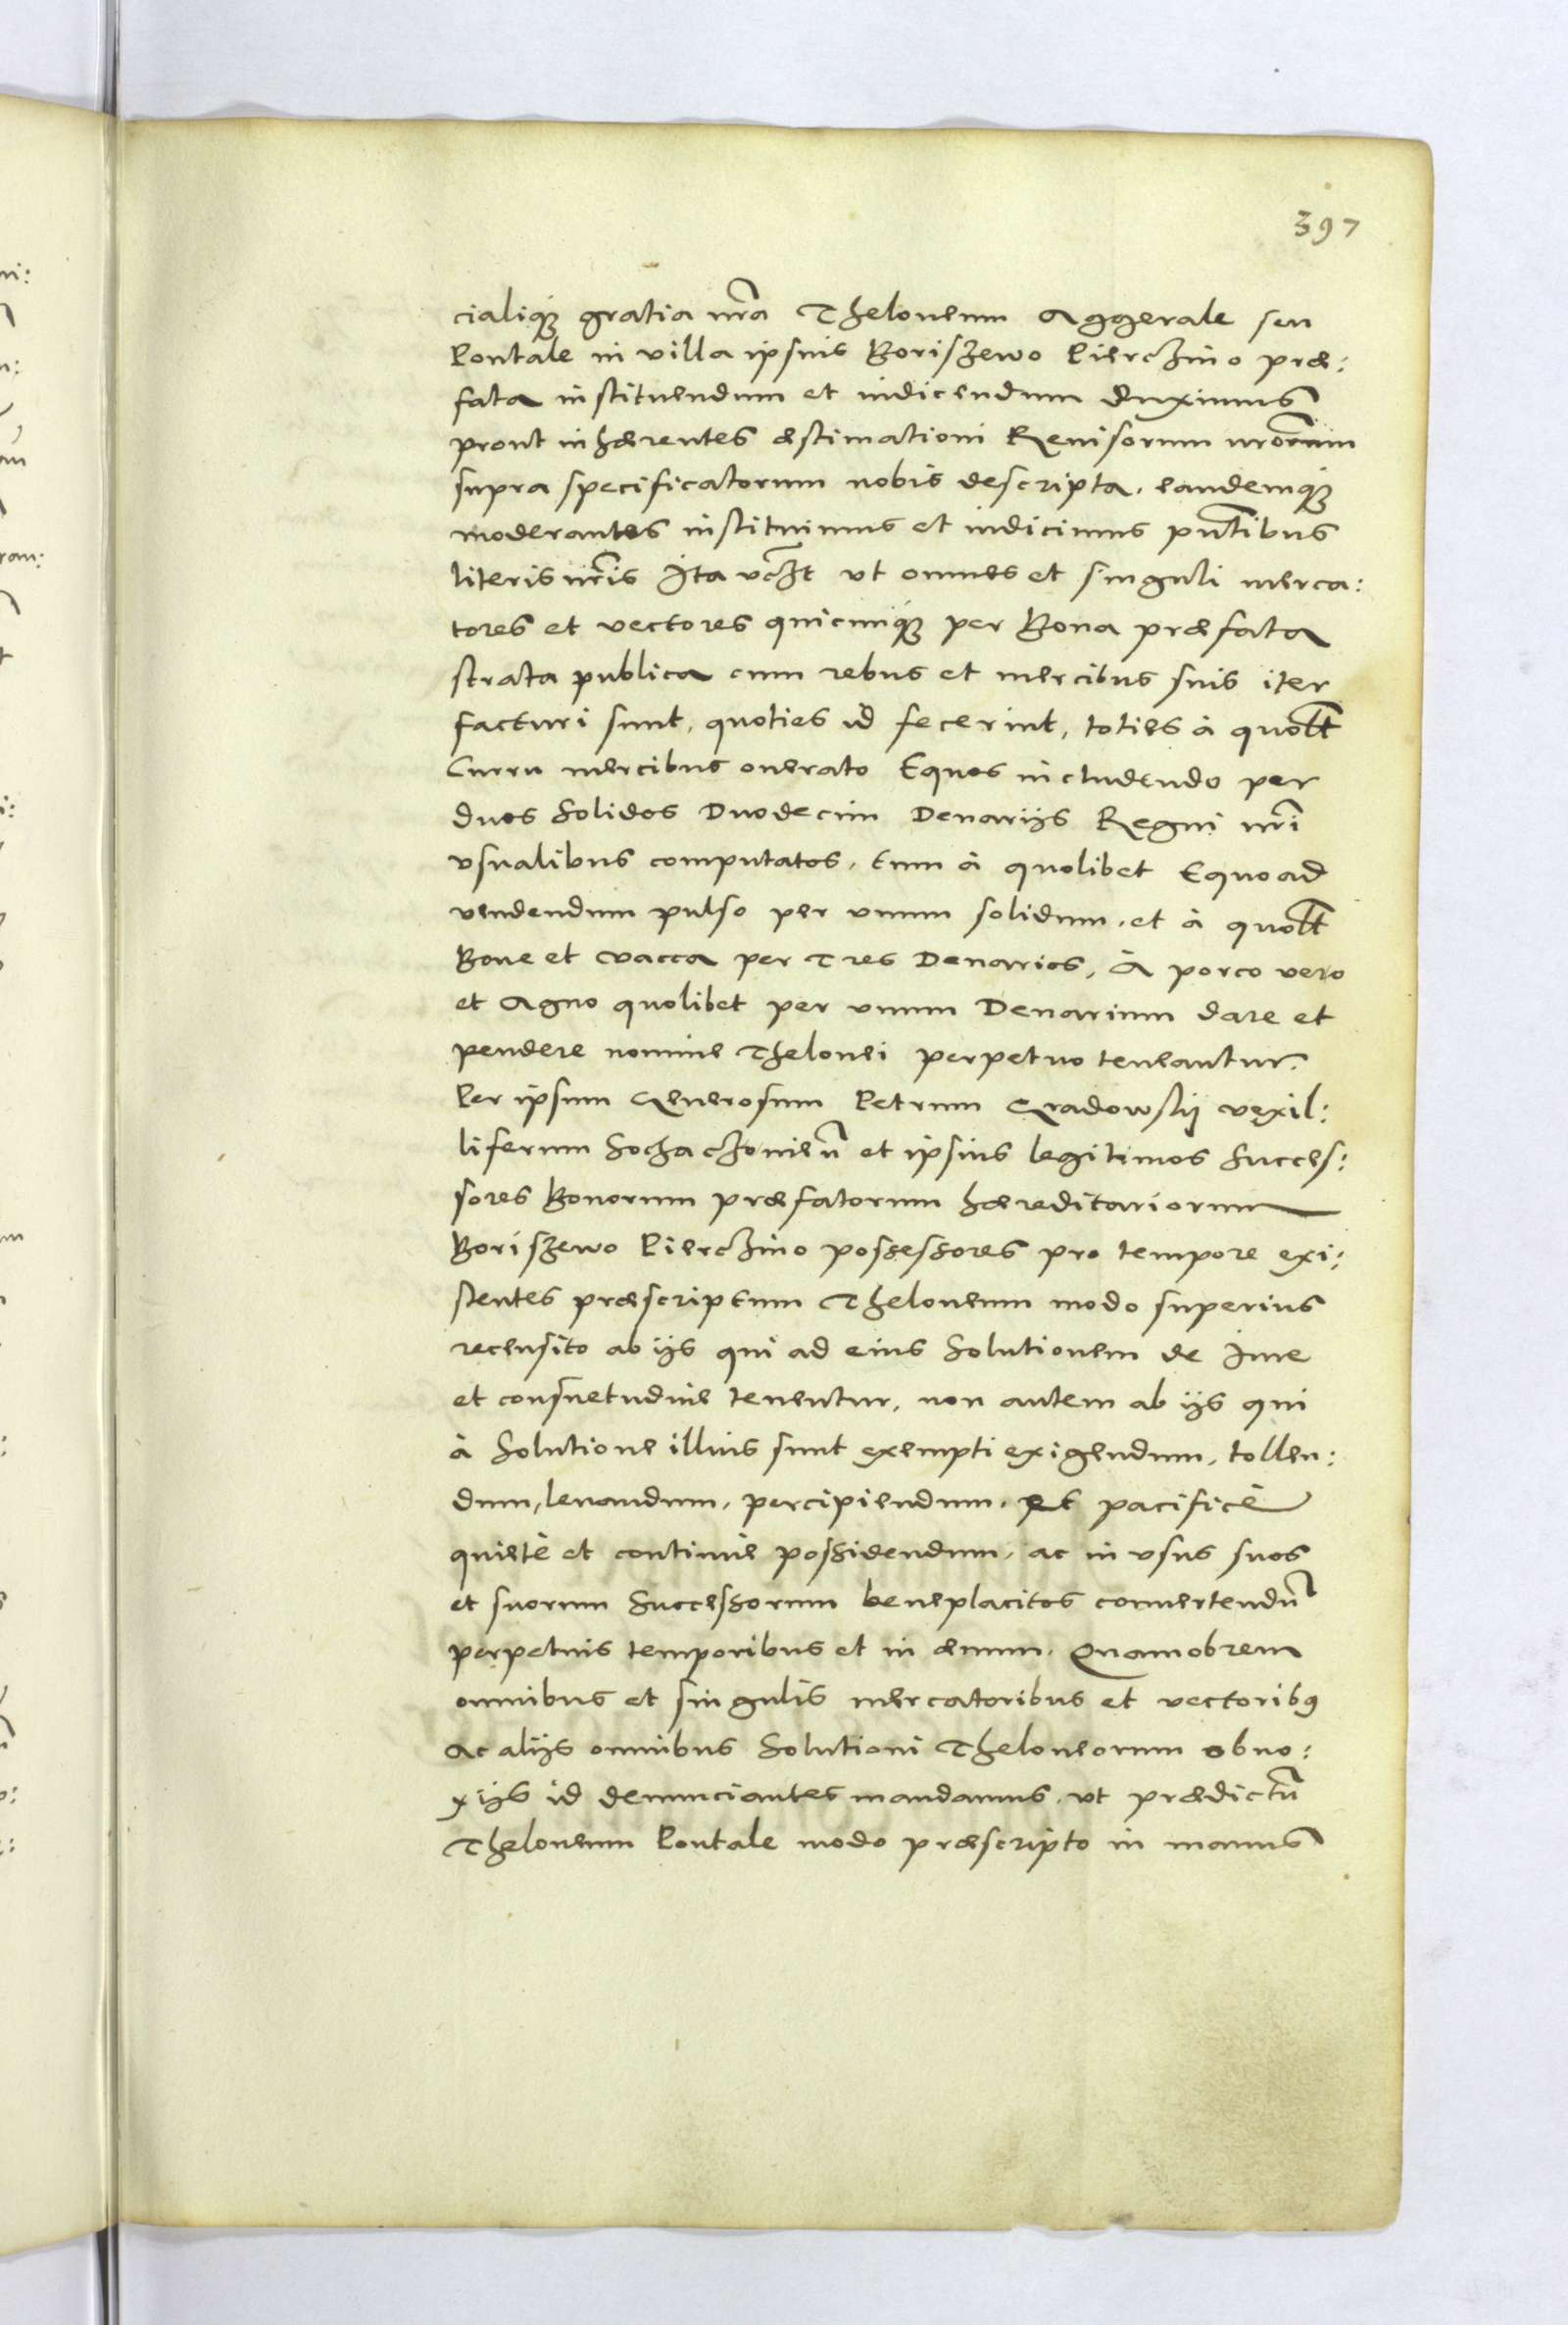 397
cialiq́ꝫ gratia nr̃a Theloneum Aggerale seu
Pontale in villa ipsius Boriszewo Pierczino præ:
fata instituendum et indicendum duximus
prout inhærentes æstimationi Reuisorum nrõrum
supra specificatorum nobis descripta, eandemq́ꝫ
moderantes instituimus et indicimus pn̄tibus
literis nr̃is Ita vczt vt omnes et singuli merca:
tores et vectores quicunq́ꝫ per Bona præfata
strata publica cum rebus et mercibus suis iter
facturi sunt, quoties id fecerint, toties à quolt̃
Curru mercibus onerato Equos includendo per
duos Solidos Duodecim Denarijs Regni nr̃i
vsualibus computatos, Tum à quolibet Equo ad
vendendum pulso per vnum solidum, et à quolt̃
Boue et vacca per Tres Denarios, A porco vero
et Agno quolibet per vnum Denarium dare et
pendere nomine Thelonei perpetuo teneantur.
Per ipsum Generosum Petrum Gradowskij vexil:
liferum Sochaczouieñ et ipsius legitimos Succes:
sores Bonorum præfatorum hæreditariorum
Boriszewo Pierczino possessores pro tempore exi:
stentes præscriptum Theloneum modo superius
recensito ab ijs qui ad eius Solutionem de Iure
et consuetudine tenentur, non autem ab ijs qui
à Solutione illius sunt exempti exigendum, tollen:
dum, leuandum, percipiendum, et pacificè
quietè et continuè possidendum, ac in vsus suos
et suorum Successorum beneplacitos conuertendũ
perpetuis temporibus et in æuum. Quamobrem
omnibus et singulis mercatoribus et vectoribꝰ
Ac alijs omnibus Solutioni Theloneorum obno:
xijs id denunciantes mandamus, vt prædictũ
Theloneum Pontale modo præscripto in manus